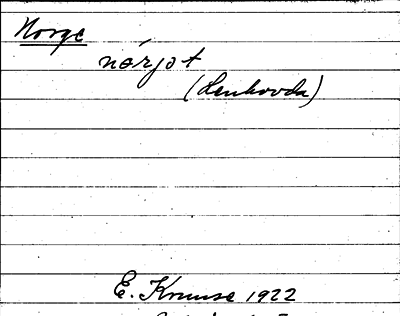 Norge
nǫ́rjǫt
(Lenhovda)
E. Krause 1922